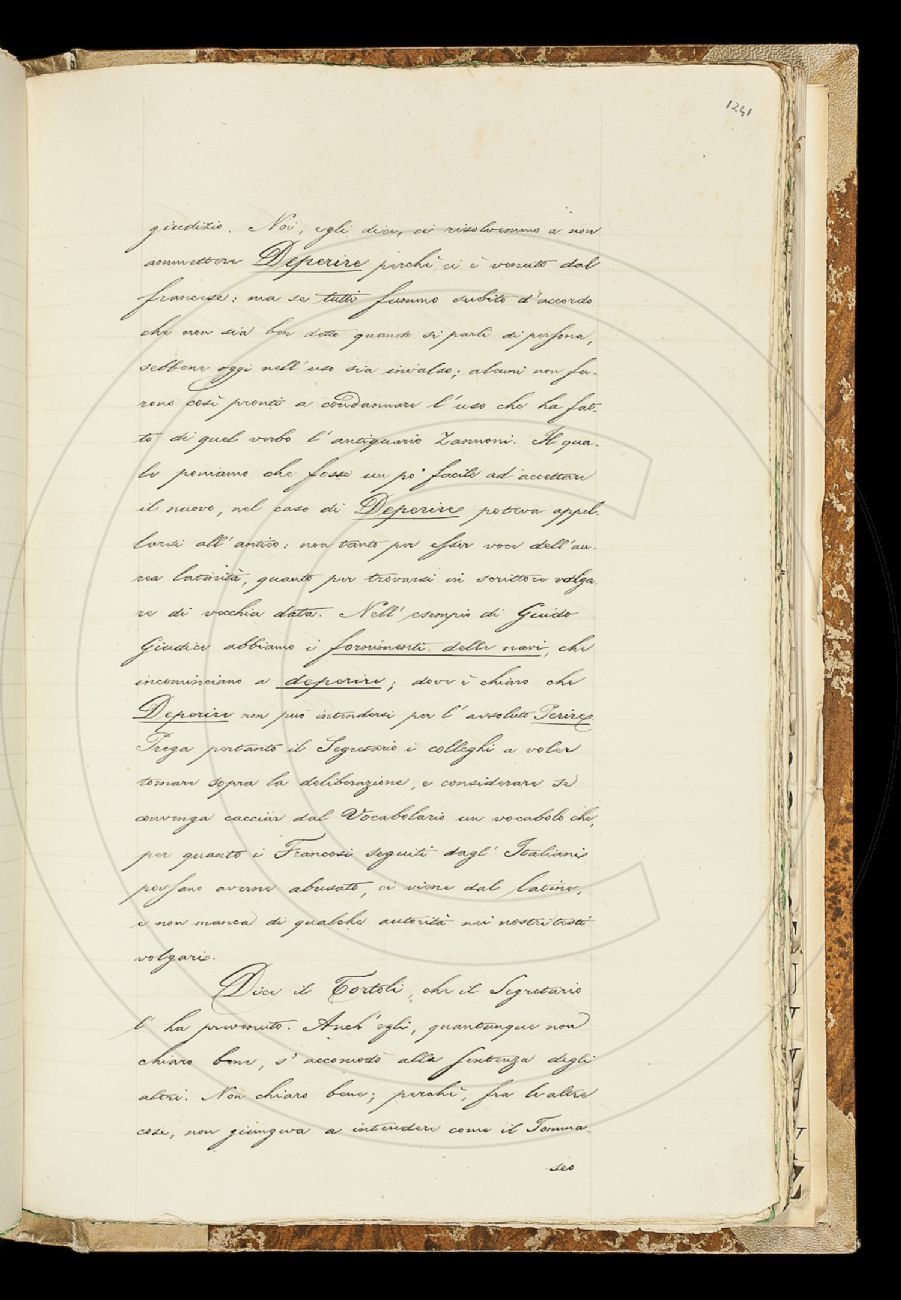 1241
giudizio. Noi, egli dice, ci risolvemmo a non
ammettere Deperire perchè ci è venuto dal
francese: ma se tutti fummo subito d'accordo
che non sia ben detto quando si parli di persona,
sebbene oggi nell'uso sia invalso; alcuni non fu-
rono così pronti a condannare l'uso che ha fat-
to di quel verbo l'antiquario Zannoni. Il qua-
le poniamo che fosse un po' facile ad accettare
il nuovo, nel caso di Deperire poteva appel-
larsi all'antico: non tanto per esser voce dell'au-
rea latinità, quanto per trovarsi in scrittore volga
re di vecchia data. Nell'esempio di Guido
Giudice abbiamo i fornimenti delle navi, che
incominciano a deperire; dove è chiaro che
Deperire non può intendersi per l'assoluto Perire.
Prega pertanto il Segretario i colleghi a voler
tornare sopra la deliberazione, e considerare se
convenga cacciar dal Vocabolario un vocabolo che,
per quanto i Francesi seguiti dagl'Italiani
possano averne abusato, ci viene dal latino,
e non manca di qualche autorità nei nostri testi
volgari.
Dice il Tortoli, che il Segretario
l'ha prevenuto. Anch'egli, quantunque non
chiaro bene, s'accomodò alla sentenza degli
altri. Non chiaro bene; perchè, fra le altre
cose, non giungeva a intendere come il Tomma-
seo